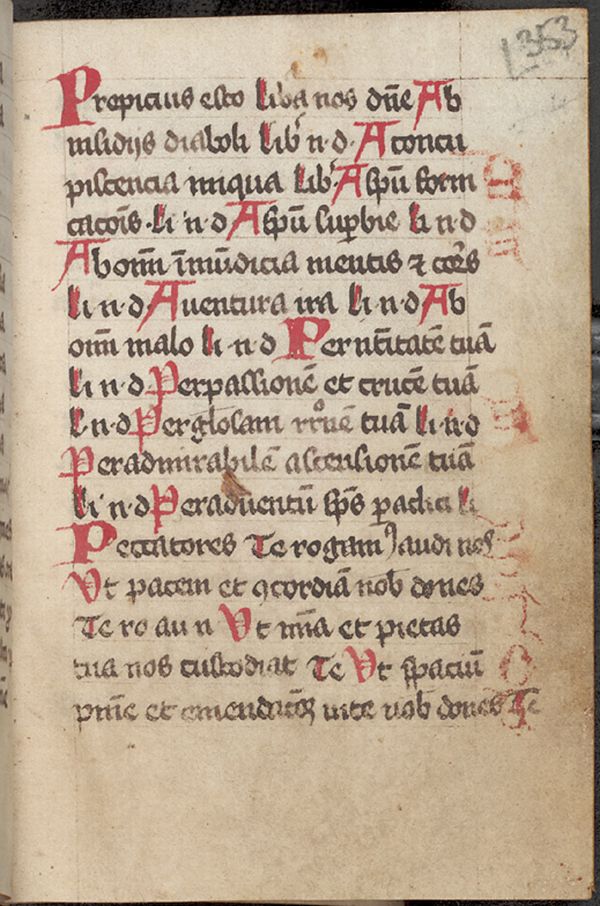 L353
Propicius esto liba nos dn̄e Ab
insidijs diaboli lib' n · d · A concu
piscencia iniqua lib' A spū forni
cacōis · li · n · d A spū suꝑbie li n d
Ab omī īmūdicia mentis ⁊ coꝛꝑis
li · n · d · A uentura ira li · n · d Ab
omī malo li · n · d Per natītatē tuā
li · n · d Per passionē et crucē tuā
li n · d Per glosam rr̄onē tuā li · n · d
Per admirabilē ascensionē tuā
li · n · d Per aduentū sp̄s ꝑacliti li
Peccatores Te rogamꝰ audi nos
Vt pacem et ꝯcordiā nob dones
Te ro au n Vt mīa et pietas
tua nos custodiat Te Vt spaciū
pnīe et emendacōꝫ uite nob dones Te